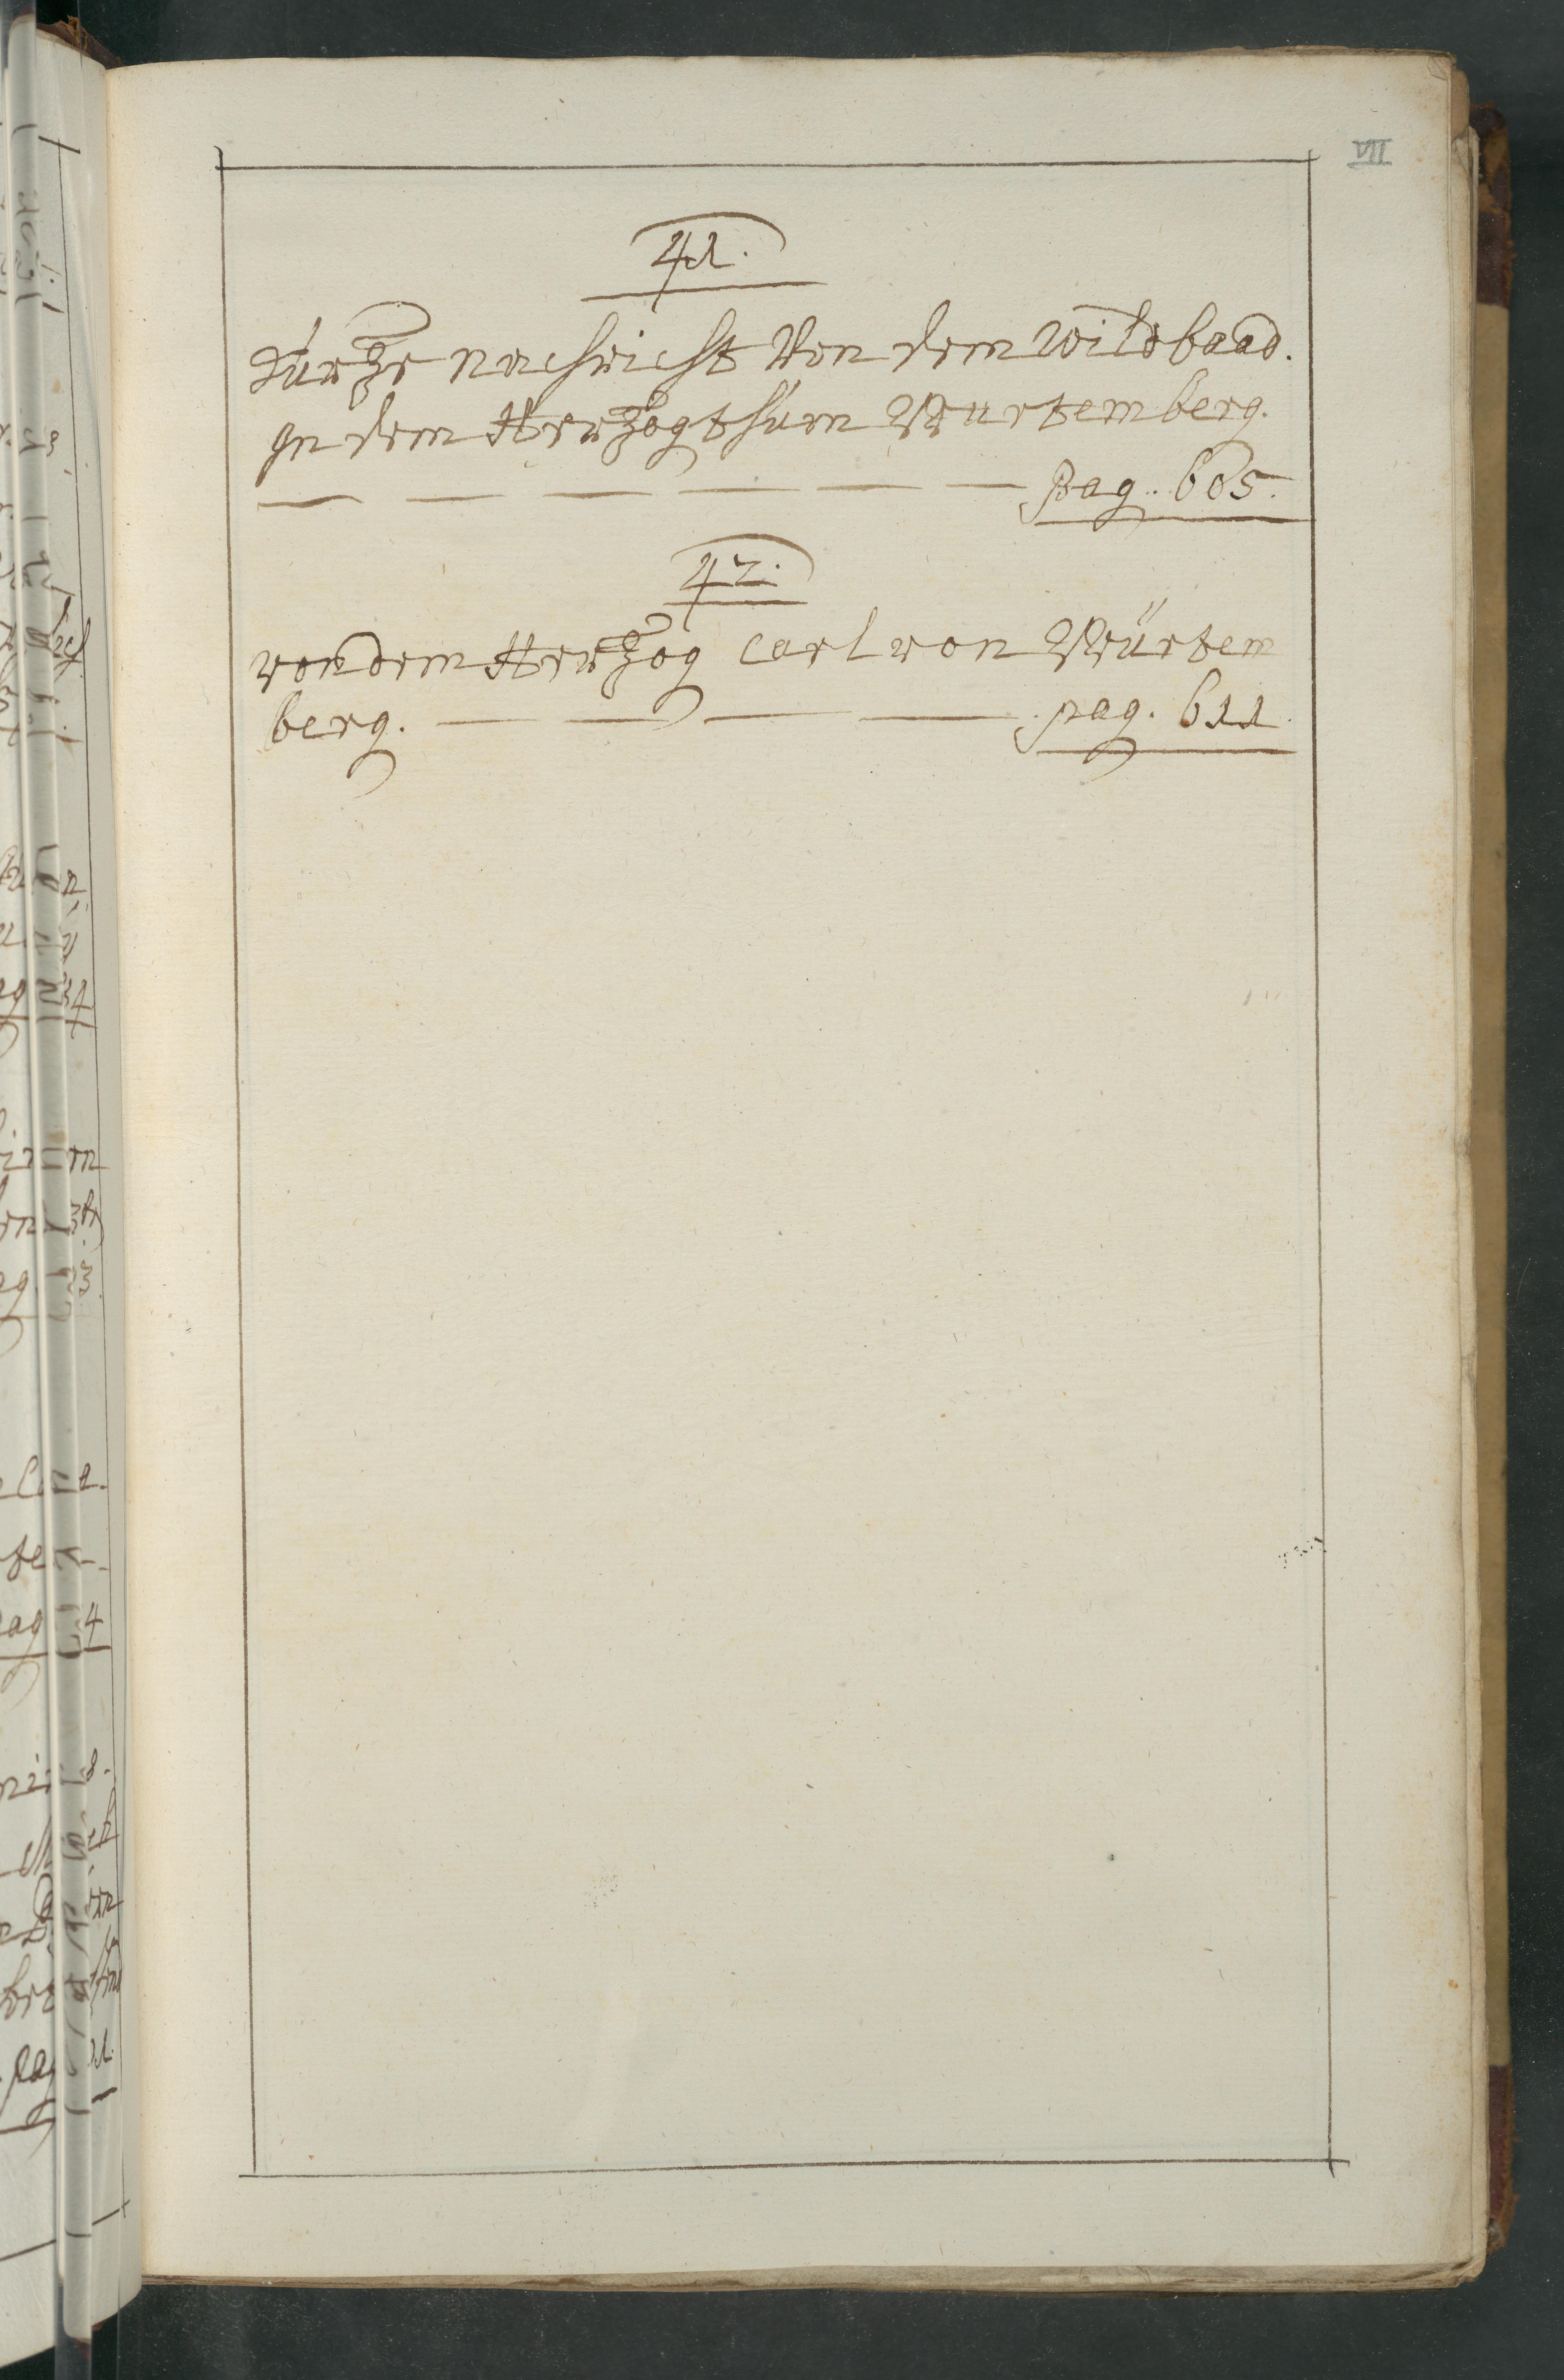 VII
41.
Kurtze nachricht Von dem Wildbaad.
In dem Hertzogthum Würtemberg.
— — — — — — pag. 605.
42.
von dem Hertzog Carl von Würtem
berg. — — — — pag. 611.